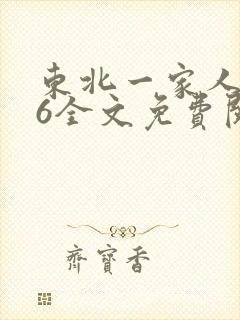 東北一家人
6全文免費閱
齊寶香